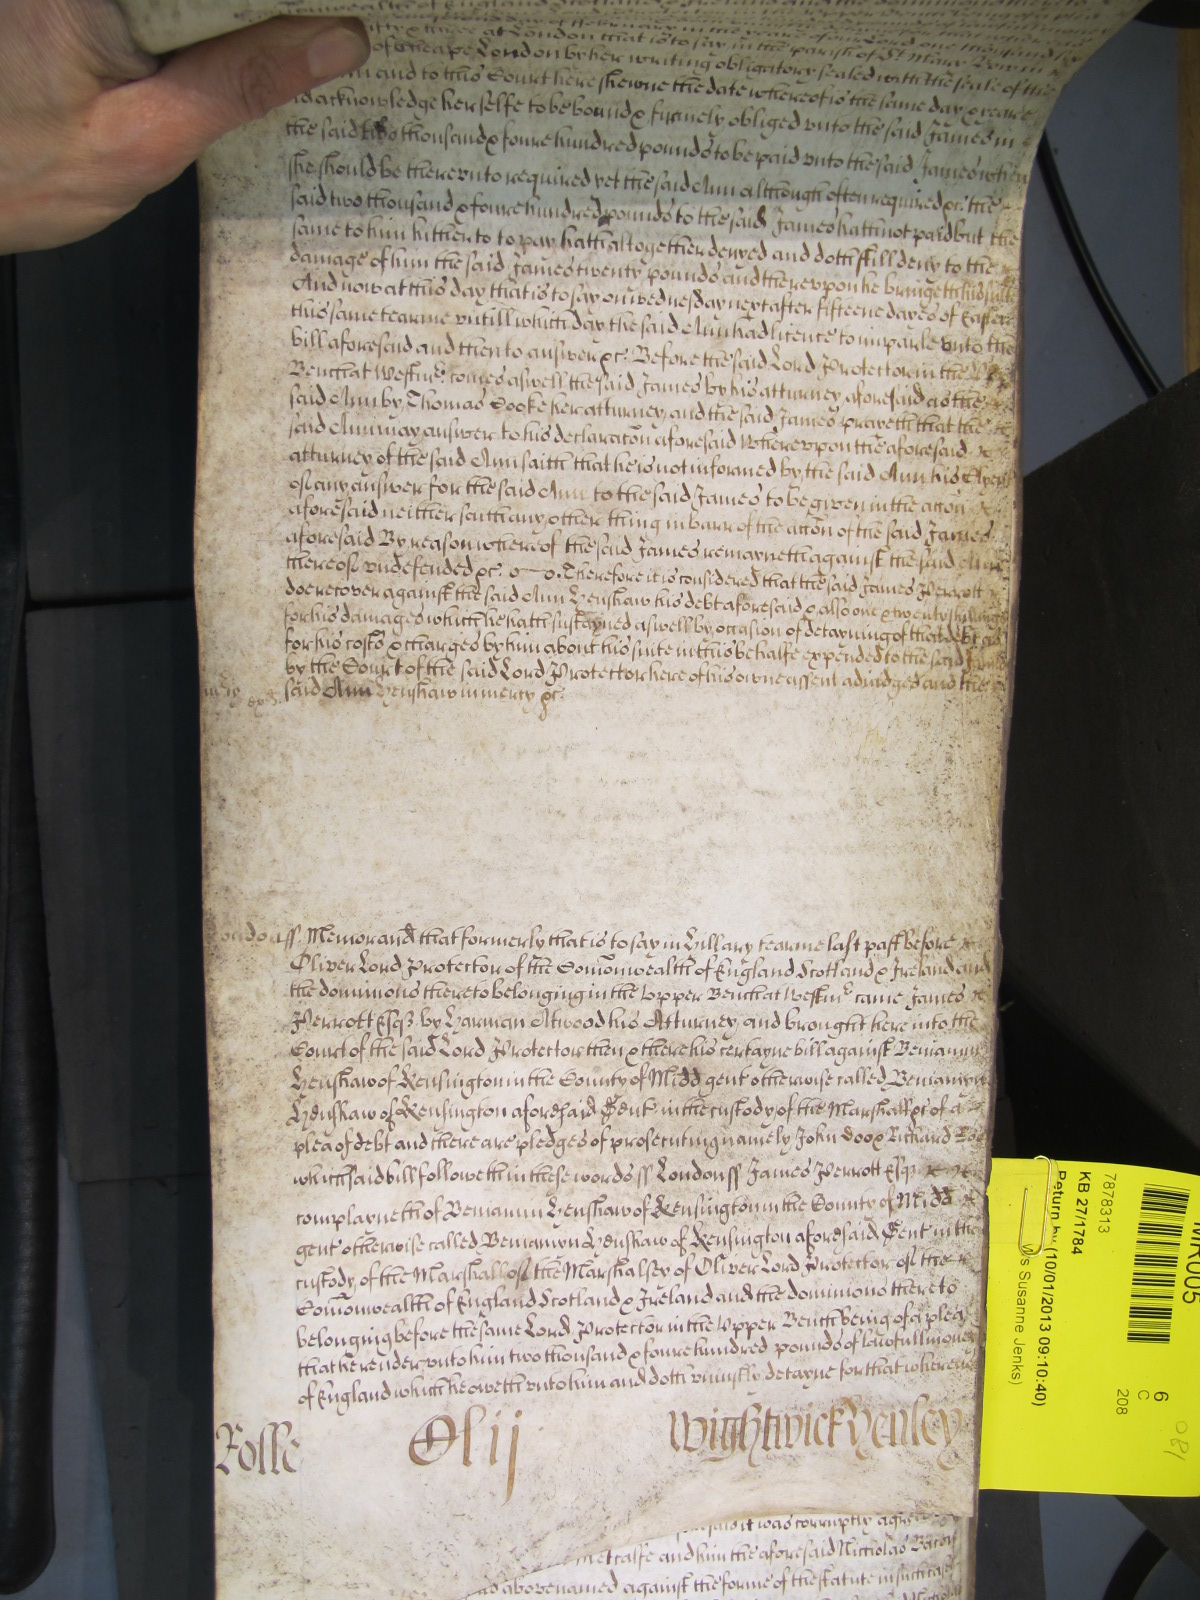 wealth of England Scotland & Ireland and the dominions
in the yeare of our Lord one thousand six
fifty & three at London that is to say in the parish of St Mary Bow in
of Cheape London by her writing obligatory sealed with the seale of the
and to this Court here shewne the date whereof is the same day & yeare
acknowledge her selfe to be bound & firmely obliged unto the said James in
the said two thousand & foure hundred pounds to be paid unto the said James when
she should be thereunto required yet the said Ann although often required &c. the
said two thousand & foure hundred pounds to the said James hath not paid but the
same to him hitherto to pay hath altogether denyed and doth still deny to the
damage of him the said James twenty pounds and thereupon he bringeth his suite
And now at this day that is to say on wednesday next after fifteene dayes of Easter
this same tearme untill which day the said Ann had licence to imparle unto the
bill aforesaid and then to answer &c. Before the said Lord Protector in the
Bench at Westmr. comes aswell the said James by his atturney aforesaid as the
said Ann by Thomas Cooke her atturney, and the said James prayeth that the
said Ann may answer to his declaracon aforesaid Whereupon the aforesaid
atturney of the said Ann saith that he is not informed by the said Ann his Clyent
of any answer for the said Ann to the said James to be given in the accon
aforesaid neither saith any other thing in barr of the accon of the said James
aforesaid By reason whereof the said James remayneth against the said Ann
thereof undefended &c. Therefore it is considered that the said James Perrott
doe recover against the said Ann Henshaw his debt aforesaid & also one & twenty shillings
for his damages which he hath sustayned aswell by occasion of detayning of that debt as
for his costs & charges by him about his suite in this behalfe expended to the said James
by the Court of the said Lord Protector here of his owne assent adiudged and the
said Ann Henshaw in mercy &c.
London ss. Memorand that formerly that is to say in Hillary tearme last past before
Oliver Lord Protector of the Comonwealth of England Scotland & Ireland and
the dominions thereto belonging in the Upper Bench at Westmr. came James
Perrott Esqr. by Harman Atwood his Atturney, and brought here into the
Court of the said Lord Protector then & there his certayne bill against Beniamin
Henshaw of Kensington in the County of Midd gent otherwise called Beniamyn
Henshaw of Kensington aforesaid Gent in the custody of the Marshall &c of a
plea of debt and there are pledges of prosecuting namely John Doo & Richard Roo
which said bill followeth in these words ss London ss James Perrott Esqr.
complayneth of Beniamin Henshaw of Kensington in the County of Midd
gent otherwise called Beniamyn Henshaw of Kensington aforesaid Gent in the
custody of the Marshall of the Marshalsey of Oliver Lord Protector of the
Comonwealth of England Scotland & Ireland and the dominions thereto
belonging before the same Lord Protector in the Upper Bench being of a plea
that he render unto him two thousand & foure hundred pounds of lawfull money
of England which he oweth unto him and doth uniustly detayne for that whereas
Rolle
Wightwick Henley
it was corruptly agreed
Metcalfe and him the aforesaid Nicholas Bacon
abovenamed against the forme of the statute in such case
7878313
KB 27/1784
Return by (10/01/2013 09:10:40)
s Susanne Jenks)
6
C
208